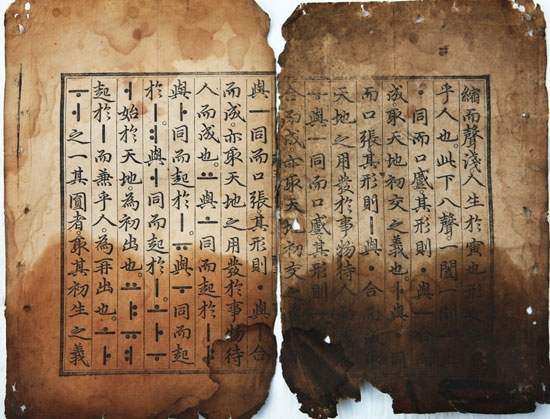 縮而聲淺人生於寅也形
乎人也。此下八聲一闔一闢
ㆍ同而口蹙其形則ㆍ與ㅡ合而
成取天地初交之義也。ㅏ與ㆍ同
而口張其形則ㅣ與ㆍ合而成取
天地之用發於事物待人而成也
ㅜ與ㅡ同而口蹙其形則ㅡ與ㆍ
合而成亦取天地初交之義
與ㅡ同而口張其形則ㆍ與ㅣ合
而成。亦取天地之用發於事物待
人而成也。ㅛ與ㅗ同而起於ㅣ。
ㅑ與ㅏ同而起於ㅣ。ㅠ與ㅜ同而起
於ㅣ。ㅕ與ㅓ同而起於ㅣ。ㅗㅏㅜ
ㅓ始於天地。為初出也。ㅛㅑㅠㅕ
起於ㅣ而兼乎人。為再出也。ㅗㅏ
ㅜㅓ之一其圓者。取其初生之義